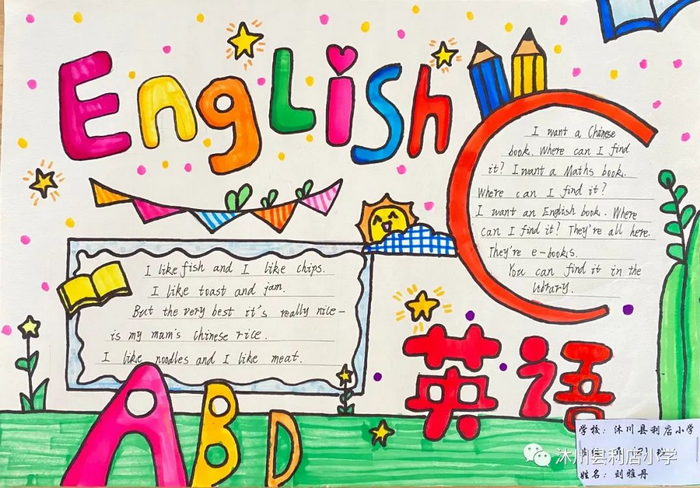 English
I want a Chinese
book. Where can I find
it? I want a Maths book.
Where can I find it?
I want an English book. Where
can I find it? They're all here.
They're e-books.
You can find it in the
library.
I like fish and I like chips.
I like toast and jam.
But the very best it's really nice-
is my mum's Chinese rice.
I like noodles and I like meat.
英语
ABD
学校: 沐川县利店小学
沐川县利店小学
姓名: 刘雅丹